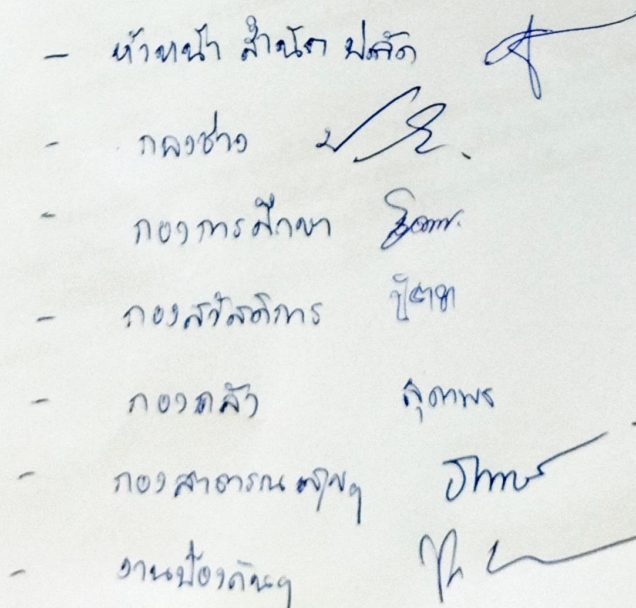 - หัวหน้า สำนัก ปลัด
- กองช่าง
- กองการศึกษา
- กองสวัสดิการ
- กองคลัง สุดาพร
- กองสาธารณสุขฯ
- งานป้องกันฯ